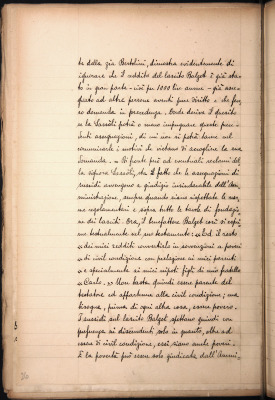 te della zia Bertolini, dimostra evidentemente di
ignorare che il reddito del lascito Balzet è già sta-
to in gran parte - cioè per 1050 lire annue - già asse-
gnato ad altre persone aventi pure diritto e che fece-
ro domanda in precedenza. Onde deriva il quesito
se la Sassoli potrà o meno impugnare queste prece-
denti assegnazioni, di cui non si potrà tacere nel
comunicarle i motivi che vietano di accogliere la sua
domanda. - Di fronte però ad eventuali reclami del-
la signora Sassoli, sta il fatto che le assegnazioni di
sussidi avvengono a giudizio insindacabile dell'Am-
ministrazione, sempre quando siano rispettate le nor-
me regolamentari e sopra tutto le tavole di fondazio-
ne dei lasciti. Ora, il benefattore Balzet così si espri-
me testualmente nel suo testamento: "Ed il resto
"dei miei redditi convertirlo in sovvenzioni a poveri
"di civil condizione con prelazione ai miei parenti
"e specialmente ai miei nipoti figli di mio fratello
"Carlo." Non basta quindi essere parente del
testatore ed appartenere alla civil condizione; ma
bisogna, prima di ogni altra cosa, essere povero.
I sussidi sul lascito Balzet spettano quindi con
preferenza ai discendenti solo in quanto, oltre ad
essere di civil condizione, essi siano anche poveri.
E la povertà può essere solo giudicata dall'Ammi-